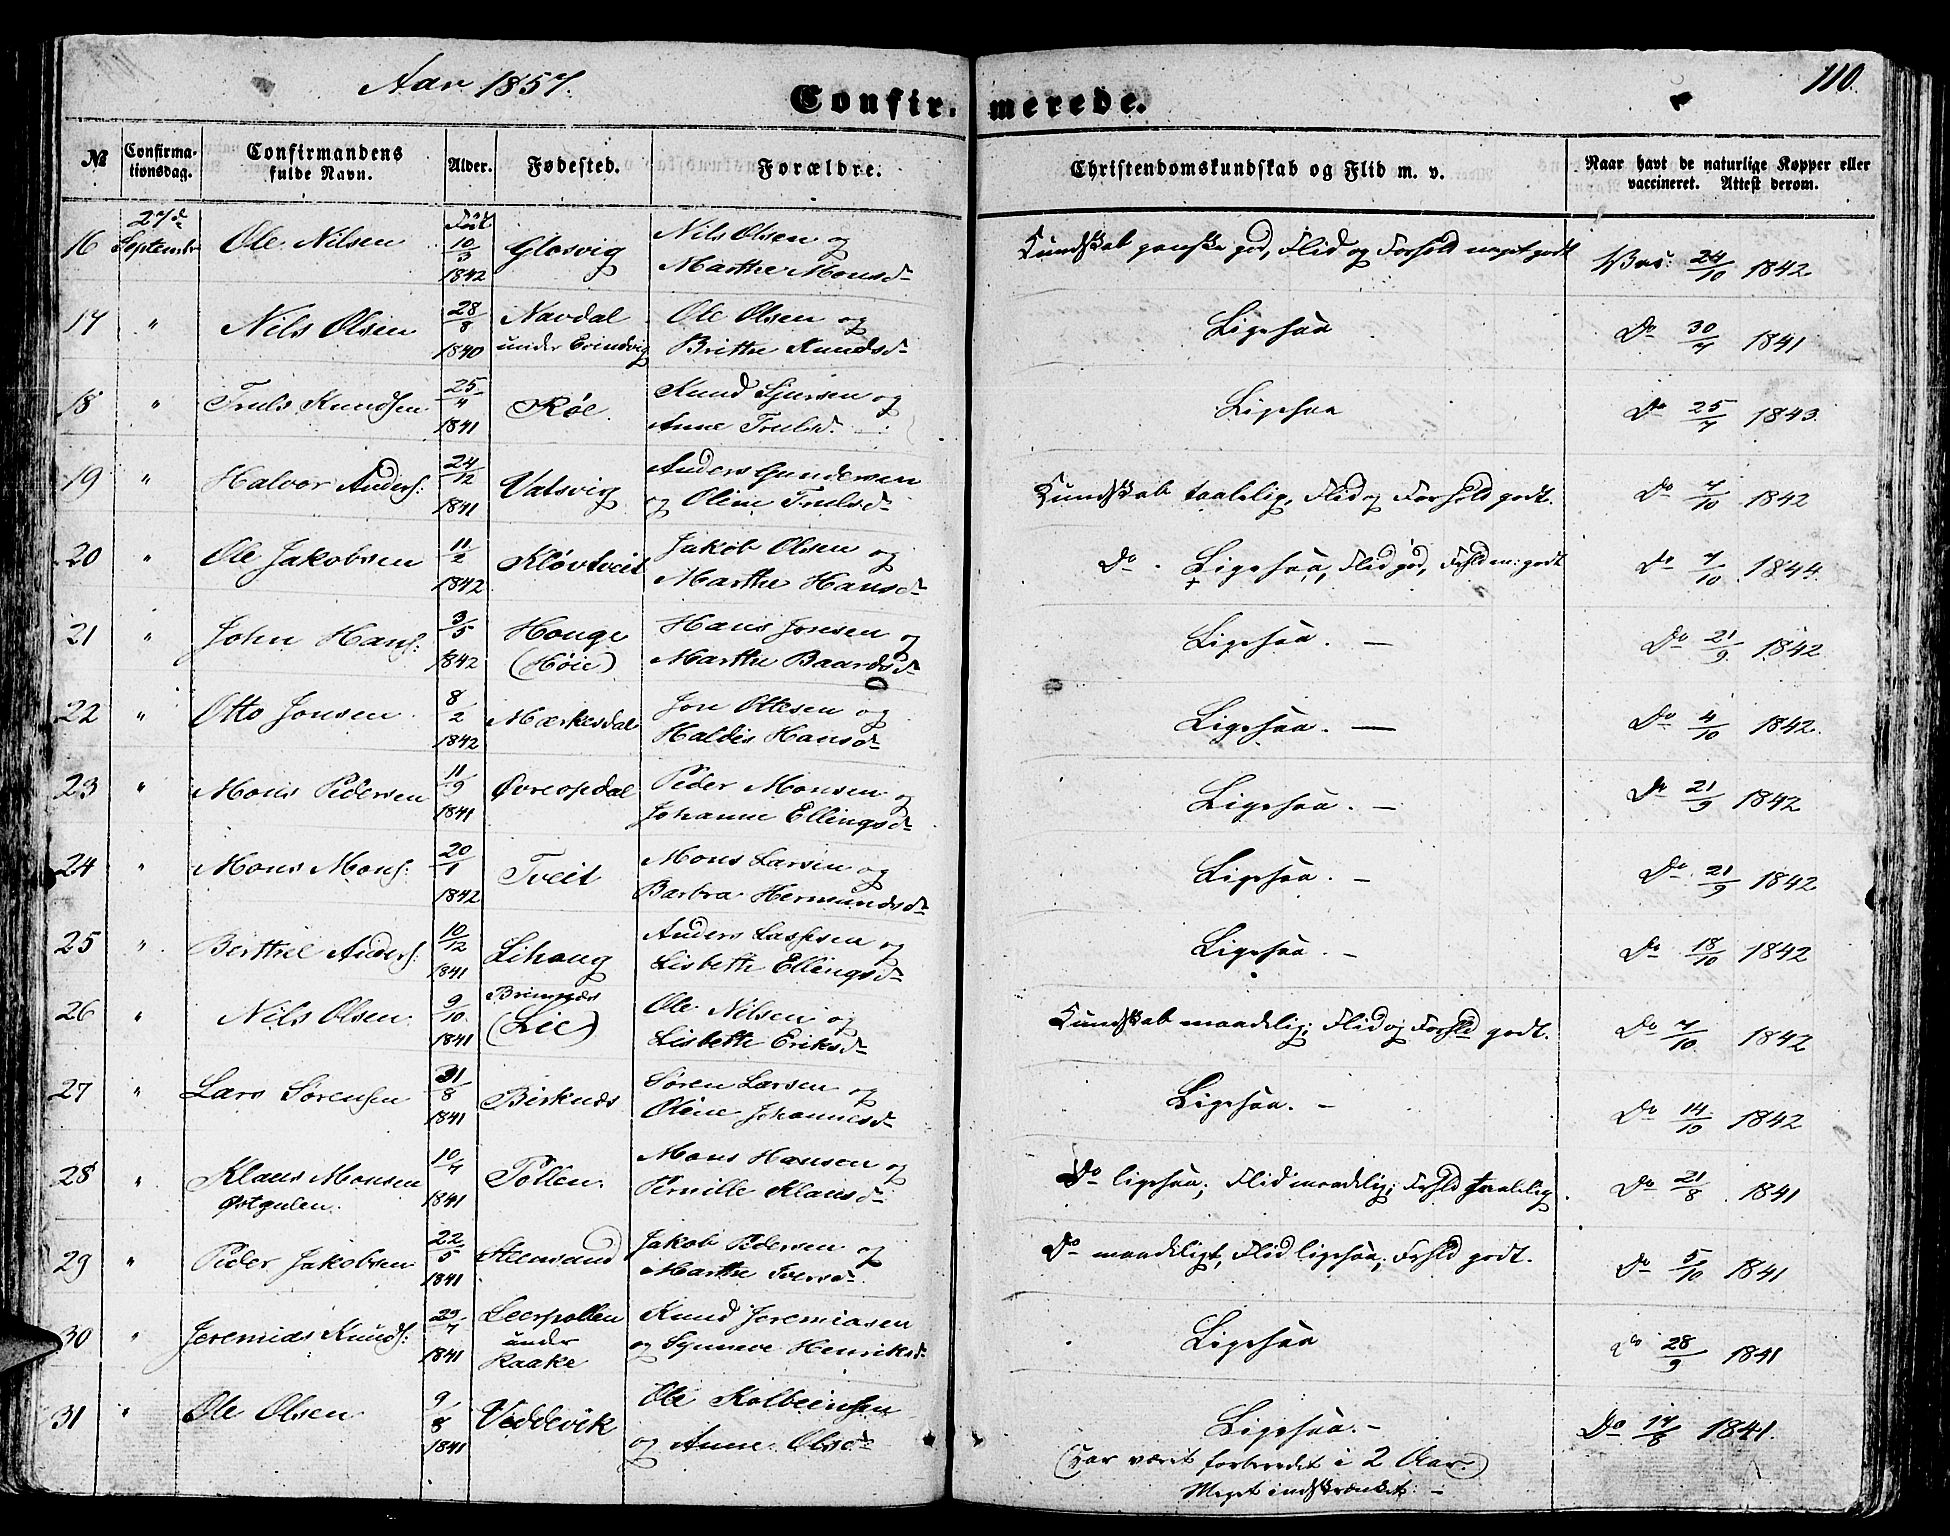 Aar 1857.
110.
Confir- merede.
№ Confirma- tionsdag. Confirmandens fulde Navn. Alder. Fødested. Forældre. Christendomskundskab og Flid m. v. Naar havt de naturlige Kopper eller vaccineret. Attest derom.
27de Født
16 September Ole Nilsen 10/3 1842 Glosvig Nils Olsen og Marthe Monsdr Kundskab ganske god, Flid og Forhold meget godt Vac: 24/10 1842.
17 " Nils Olsen 28/8 1840 Navdal under Evindvig Ole Olsen og Brithe Knudsdr Ligesaa Do 30/7 1841
18 " Truls Knudsen 25/4 1841 Røe Knud Sjursen og Anne Trulsd. Ligesaa Do 25/7 1843.
19 " Halvor Anders: 24/12 1841 Vatsvig Anders Gundersen og Oline Trulsdr Kundskab taalelig, Flid og Forhold godt. Do 7/10 1842
20 " Ole Jakobsen 11/2 1842 Kløvtveit Jakob Olsen og Marthe Hansdr Do. Ligesaa, Flid god, Forhld m: godt Do 7/10 1844.
21 " John Hans: 3/5 1842 Houge (Høie) Hans Jonsen og Marthe Baardsdr Ligesaa. — Do 21/9 1842
22 " Otto Jonsen 8/2 1842 Mærkesdal Jon Ottesen og Haldis Hansdr Ligesaa. — Do 4/10 1842.
23 " Mons Pedersen 11/9 1841 Øvreopdal Peder Monsen og Johanne Ellingsdr Ligesaa. — Do 21/9 1842
24 " Mons Mons: 20/1 1842 Tveit Mons Larsen og Barbra Hermundsdr Ligesaa. — Do 21/9 1842
25 " Berthel Anders: 10/12 1841 Lihaug Anders Lassesen og Lisbeth Ellingsdr Ligesaa. — Do 18/10 1842
26 " Nils Olsen 9/10 1841 Brimnæs (Lie) Ole Nilsen og Lisbeth Eriksdr Kundskab maadelig; Flid og Forhld godt. Do 7/10 1842
27 " Lars Sørensen 31/8 1841 Birknæs Søren Larsen og Oline Johannesdr Ligesaa. — Do 14/10 1842
28 " Klaus Monsen Østgulen. 10/4 1841 Pollen. Mons Hansen og Pernille Klausdr Do ligesaa; Flid maadelig; Forhld taalelig. Do 21/8 1841
29 " Peder Jakobsen 22/5 1841 Steensund Jakob Pedersen og Marthe Iversdr Do maadeligt, Flid ligesaa; Forhld godt. Do 5/10 1841
30 " Jeremias Knuds: 29/7 1841 Leerpollen under Raake Knud Jeremiasen og Synneve Henriksdr Ligesaa Do 28/9 1841
31 " Ole Olsen 9/8 1841 Veddevik Ole Kolbeinsen og Anne Olsdr Ligesaa. — Do 17/8 1841.
(Har været forberedet i 2 Aar.)
Meget indskrænket. —